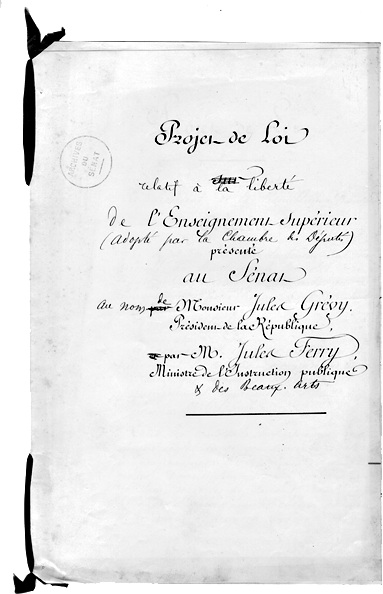 Projet de Loi
ARCHIVES
DU
SÉNAT
relatif à la liberté
de l'Enseignement Supérieur
(adopté par la Chambre des Députés)
présenté
au Sénat
au nom de Monsieur Jules Grévy,
Président de la République,
par M. Jules Ferry,
Ministre de l'Instruction publique
& des Beaux-arts